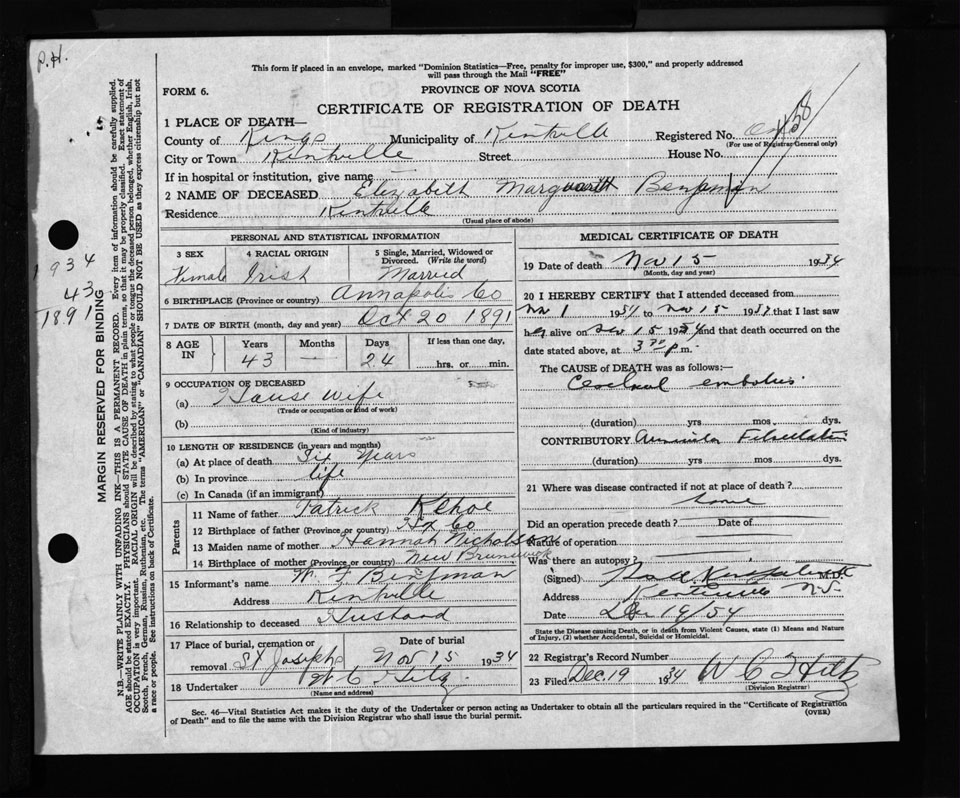 P.H.
This form if placed in an envelope, marked "Dominion Statistics—Free, penalty for improper use, $300," and properly addressed
will pass through the Mail "FREE"
FORM 6.
PROVINCE OF NOVA SCOTIA
CERTIFICATE OF REGISTRATION OF DEATH
1 PLACE OF DEATH—
County of Kings Municipality of Kentville Registered No.
(For use of Registrar General only)
City or Town Kentville Street House No.
If in hospital or institution, give name
2 NAME OF DECEASED Elizabeth Benjman
Residence Kentville
(Usual place of abode)
PERSONAL AND STATISTICAL INFORMATION
3 SEX 4 RACIAL ORIGIN 5 Single, Married, Widowed or
Divorced. (Write the word)
Female Irish Married
6 BIRTHPLACE (Province or country) Annapolis Co
7 DATE OF BIRTH (month, day and year) Oct 20 1891
8 AGE IN Years Months Days If less than one day,
43 — 24 hrs. or min.
9 OCCUPATION OF DECEASED
(a) House wife
(Trade or occupation or kind of work)
(b)
(Kind of industry)
10 LENGTH OF RESIDENCE (in years and months)
(a) At place of death Six Years
(b) In province life
(c) In Canada (if an immigrant)
Parents
11 Name of father Patrick Kehoe
12 Birthplace of father (Province or country) Hx Co
13 Maiden name of mother Hannah Nicholson
14 Birthplace of mother (Province or country) New Brunswick
15 Informant's name W. F. Benjman
Address Kentville
16 Relationship to deceased Husband
17 Place of burial, cremation or removal St Josephs Date of burial Nov 15 1934
18 Undertaker
(Name and address)
MEDICAL CERTIFICATE OF DEATH
19 Date of death Nov 15 1934
(Month, day and year)
20 I HEREBY CERTIFY that I attended deceased from
Nov 1 1934 to Nov 15 1934 that I last saw
her alive on Nov 15 1934 and that death occurred on the
date stated above, at 3 30 p m.
The CAUSE of DEATH was as follows:—
Cerebral embolus
(duration) yrs. mos. dys.
CONTRIBUTORY Auricular Fibrillation
(duration) yrs. mos. dys.
21 Where was disease contracted if not at place of death?
home
Did an operation precede death? Date of
Nature of operation
Was there an autopsy?
(Signed) M.D.
Address Kentville N.S.
Date Dec 19/34
State the Disease causing Death, or in death from Violent Causes, state (1) Means and Nature
of Injury, (2) whether Accidental, Suicidal or Homicidal.
22 Registrar's Record Number
23 Filed Dec. 19 1934 W C
(Division Registrar)
Sec. 46—Vital Statistics Act makes it the duty of the Undertaker or person acting as Undertaker to obtain all the particulars required in the "Certificate of Registration
of Death" and to file the same with the Division Registrar who shall issue the burial permit.
(OVER)
1934
43
1891
MARGIN RESERVED FOR BINDING
N.B.—WRITE PLAINLY WITH UNFADING INK—THIS IS A PERMANENT RECORD. Every item of information should be carefully supplied.
AGE should be stated EXACTLY. PHYSICIANS should STATE CAUSE OF DEATH in plain terms, so that it may be properly classified. Exact statement of
OCCUPATION is very important. RACIAL ORIGIN will be described by stating to what people or tongue the deceased person belonged, whether English, Irish,
Scotch, French, German, Russian, Ruthenian, etc. The terms "AMERICAN" or "CANADIAN" SHOULD NOT BE USED as they express citizenship but not
a race or people. See instructions on back of Certificate.